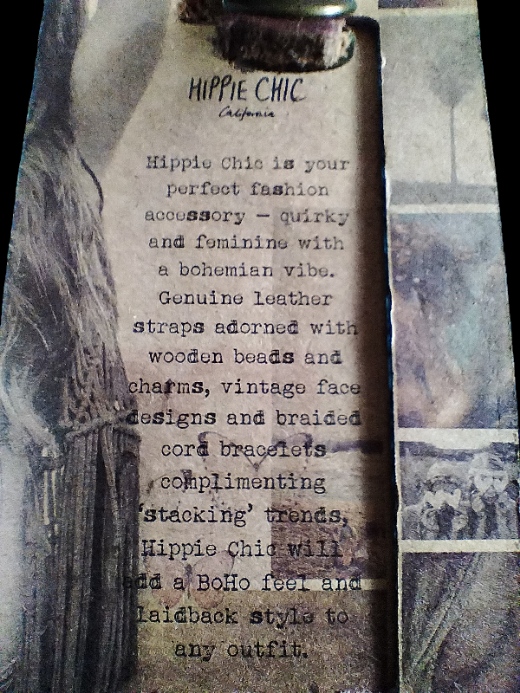 HIPPIE CHIC
California
Hippie Chic is your
perfect fashion
accessory — quirky
and feminine with
a bohemian vibe.
Genuine leather
straps adorned with
wooden beads and
charms, vintage face
designs and braided
cord bracelets
complimenting
'stacking' trends,
Hippie Chic will
add a BoHo feel and
laidback style to
any outfit.